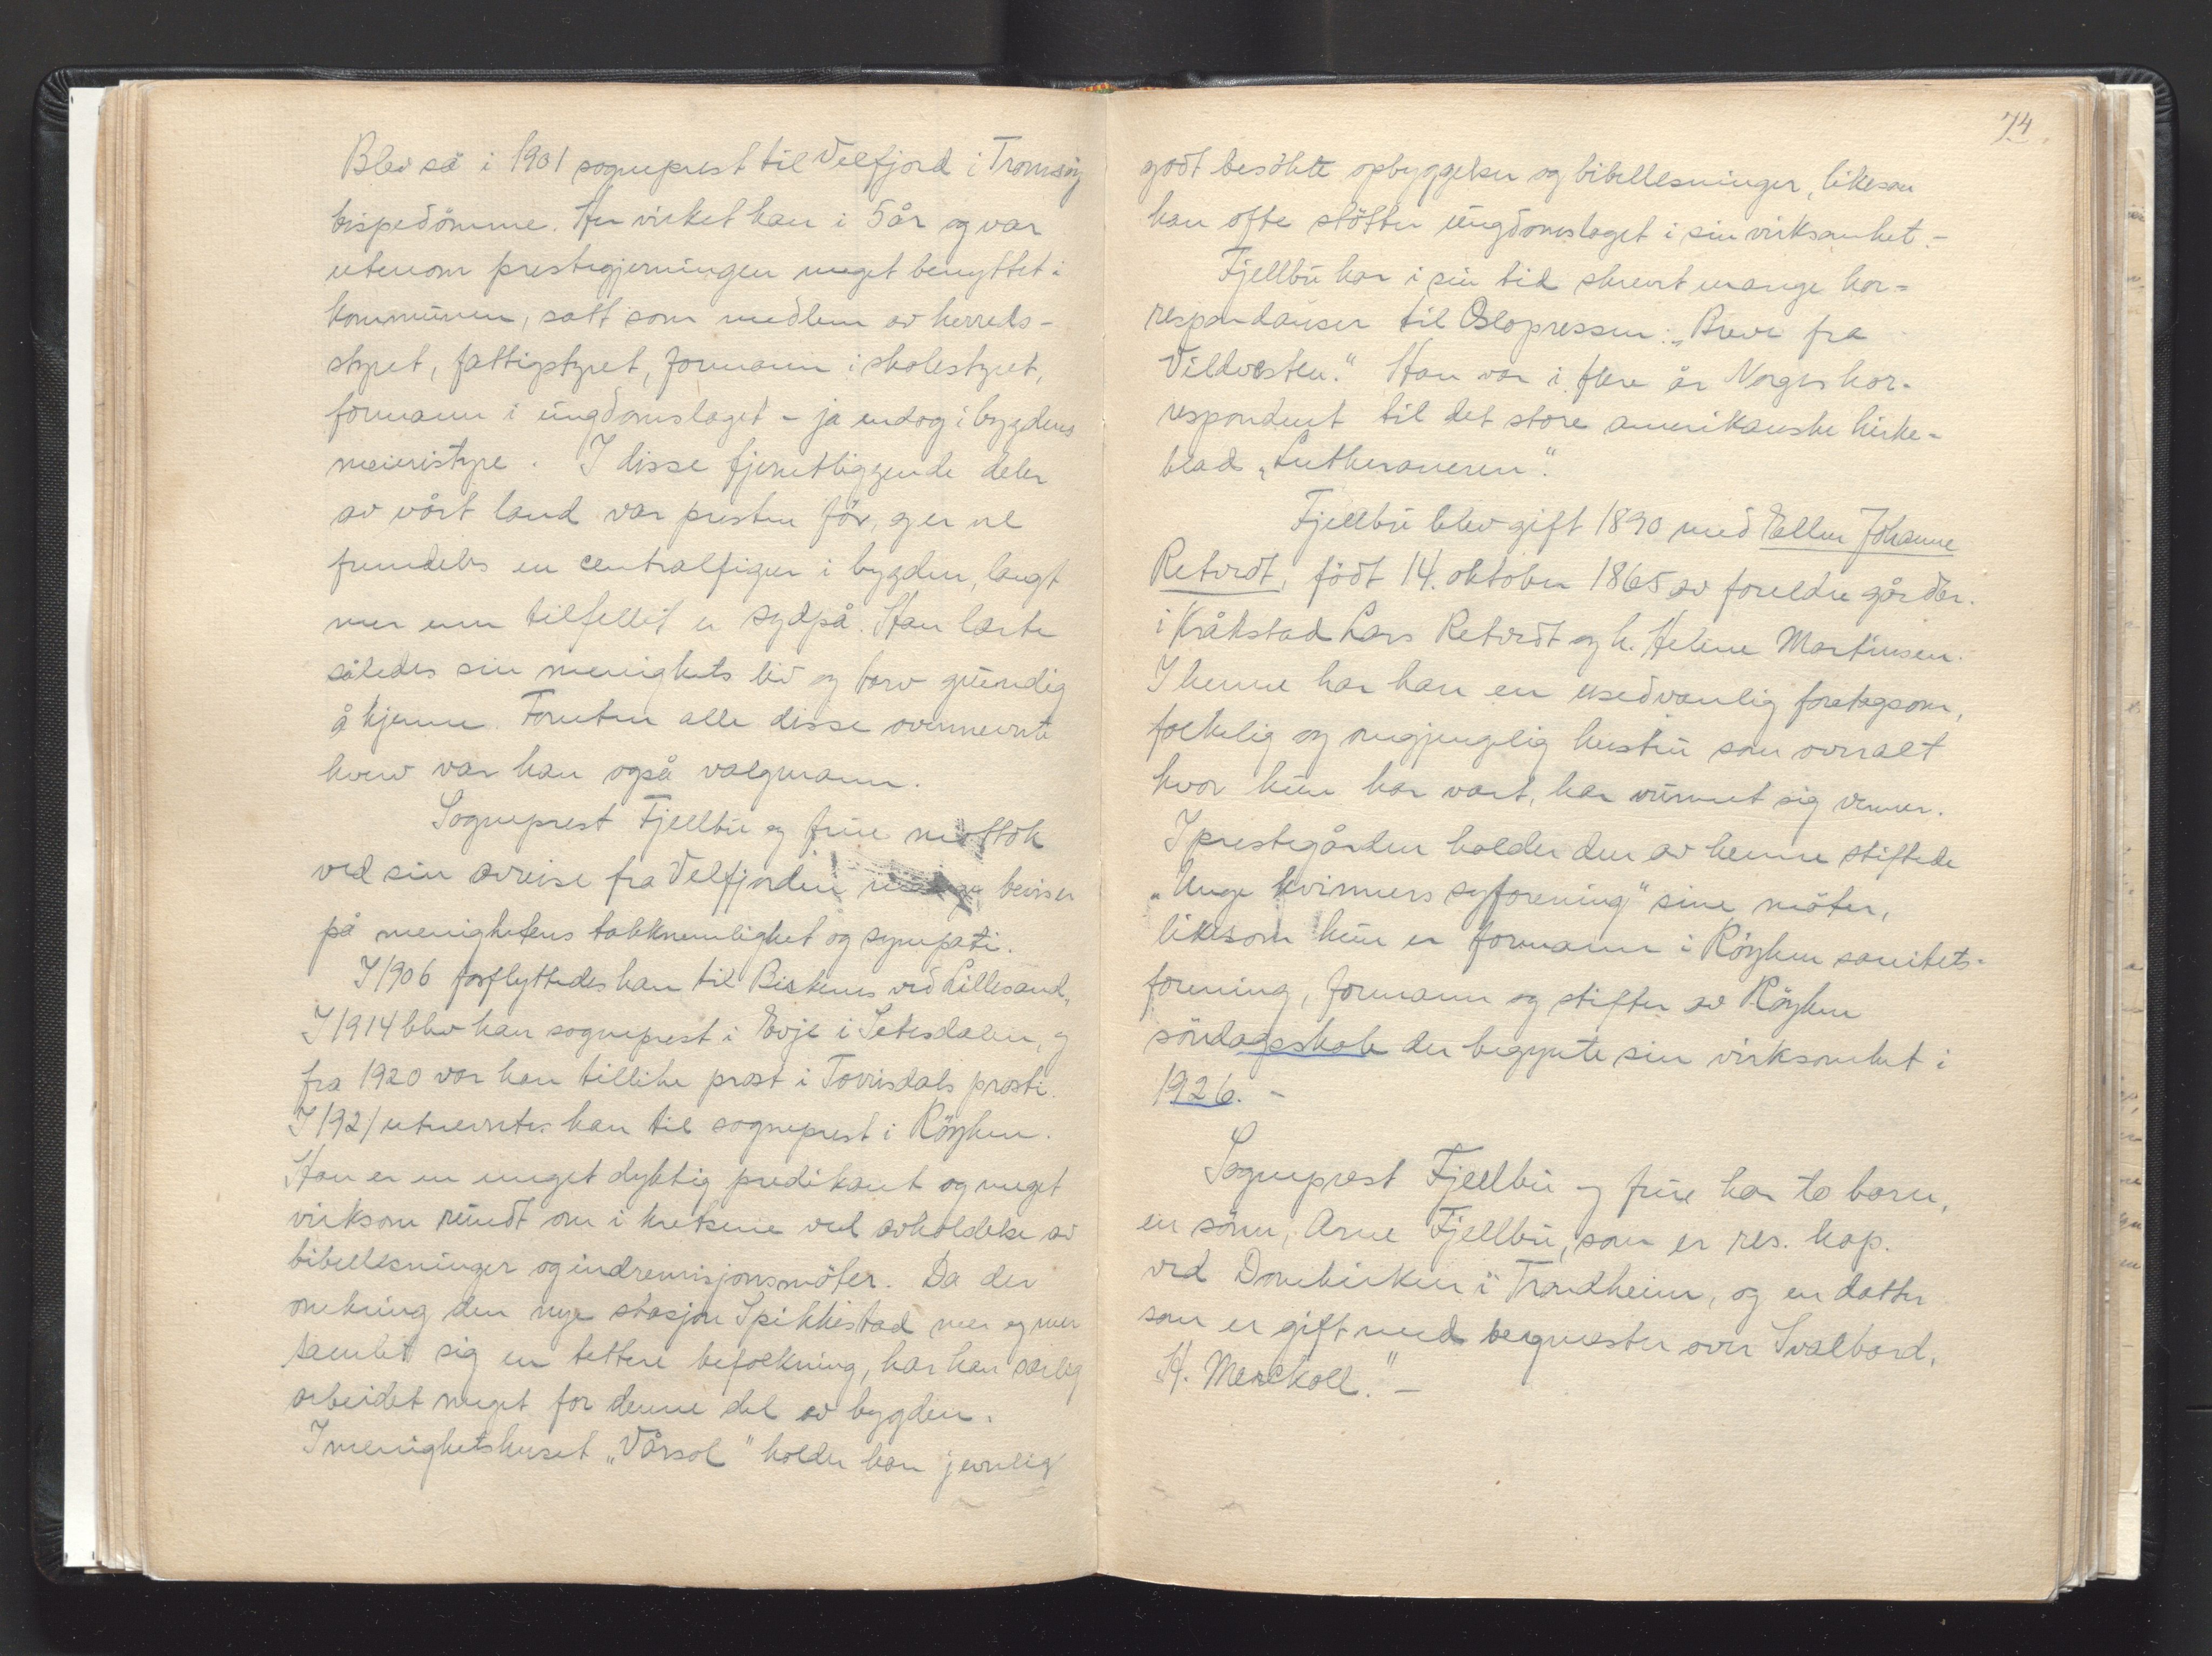 Blev så i 1901 sogneprest til Velfjord i Tromsø
bispedömme. Her virket han i 5 år og var
utenom prestegjerningen meget benyttet i
kommunen, satt som medlem av herreds-
styret, fattigstyret, formann i skolestyret,
formann i ungdomslaget - ja endog i bygdens
meieristyre. I disse fjerntliggende deler
av vårt land var presten för, og er vel
fremdeles en centralfigur i bygden, langt
mer enn tilfellet er sydpå. Han lærte
således sin menighets liv og tarv grundig
å kjenne. Foruten alle disse overnevnte
hverv var han også valgmann.
Sogneprest Fjellbu og frue mottok
ved sin avreise fra Velfjorden mange beviser
på menighetens takknemlighet og sympati.
I 1906 forflyttedes han til Birkenes ved Lillesand,
I 1914 blev han sogneprest i Evje i Setesdalen, og
fra 1920 var han tillike prost i Tovdals prosti.
I 1921 utnevntes han til sogneprest i Röyken.
Han er en meget dyktig predikant og meget
virksom rundt om i kretsene ved avholdelse av
bibellesninger og indremisjonsmöter. Da der
omkring den nye stasjon Spikkestad mer og mer
samlet sig en tettere befolkning, har han særlig
arbeidet meget for denne del av bygden.
I menighetshuset „Vårsol" holder han jevnlig
74.
godt besökte opbyggelser og bibellesninger, likesom
han ofte stötter ungdomslaget i sin virksomhet.-
Fjellbu har i sin tid skrevet mange kor-
respondanser til Oslopressen: „Breve fra
Vildvesten." Han var i flere år Norges kor-
respondent til det store amerikanske kirke-
blad „Lutheraneren".
Fjellbu blev gift 1890 med Ellen Johanne
Retvedt, födt 14. oktober 1865 av foreldre gårdbr.
i Kråkstad Lars Retvedt og h. Helene Martinsen.
I henne har han en usedvanlig foretagsom,
folkelig og omgjengelig hustru som overalt
hvor hun har vært, har vunnet sig venner.
I prestegården holder den av henne stiftede
„Unge kvinners syforening" sine möter,
likesom hun er formann i Röyken sanitets-
forening, formann og stifter av Röyken
söndagsskole der begynte sin virksomhet i
1926. -
Sogneprest Fjellbu og frue har to barn,
en sönn, Arne Fjellbu, som er res. kap.
ved Domkirken i Trondheim, og en datter
som er gift med bergmester over Svalbard,
H. Merckoll." -